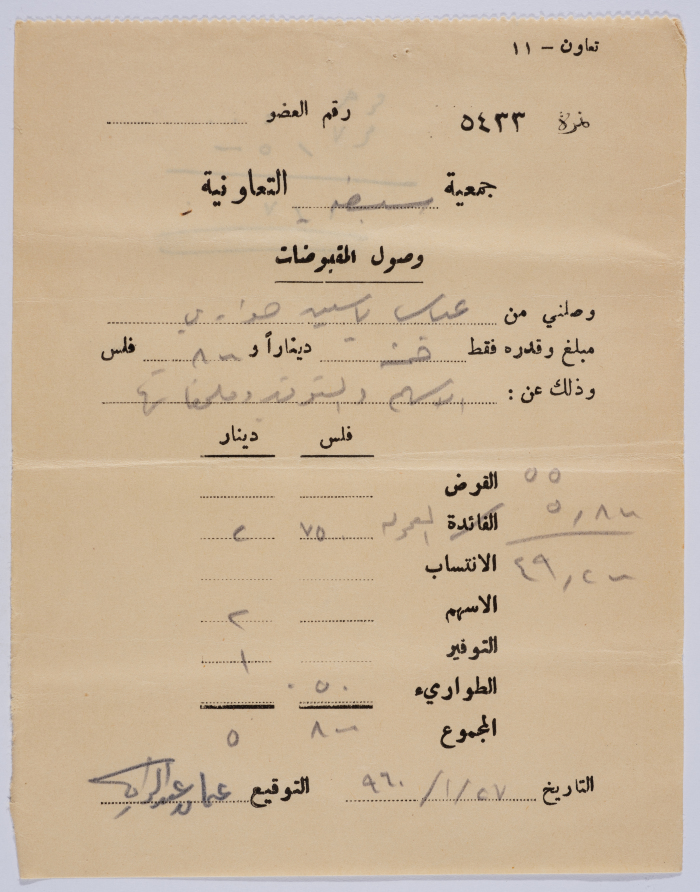 تعاون – ١١
نمرة ٥٤٣٣ رقم العضو
جمعية التعاونية
وصول المقبوضات
وصلني من عباس ياسين هواري
مبلغ وقدره فقط خمسة ديناراً و ٨٠٠ فلس
وذلك عن : الاسهم والتوفير وملحقاتها
فلس دينار
القرض ٥٥
الفائدة ٧٥٠ ٢ ٥,٨٠٠
الانتساب ٤٩,٢٠٠
الاسهم ٢
التوفير ١
الطواريء ٠٥٠
المجموع ٨٠٠ ٥
التاريخ ٢٧/١/٩٦٠ التوقيع